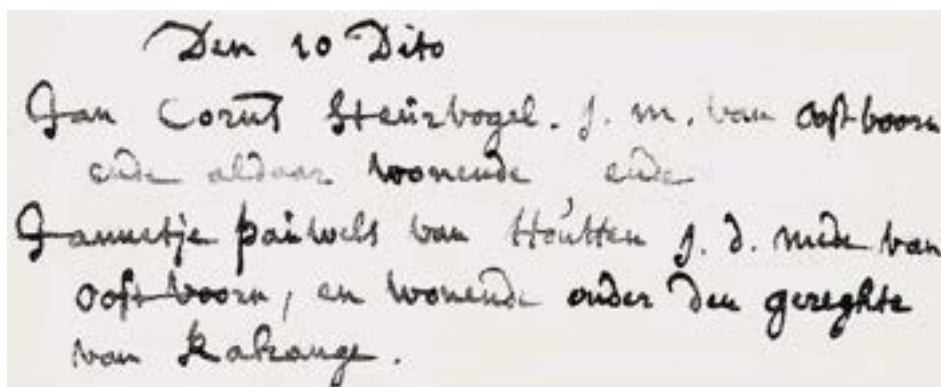 Den 10 Dito
Jan Corns Steurvogel. J. m. van oostvoorn
ende aldaar wonende ende
Jannetje pauwels van Houtten J. d. mede van
oostvoorn, en wonende onder den gereghte
van Kakange.